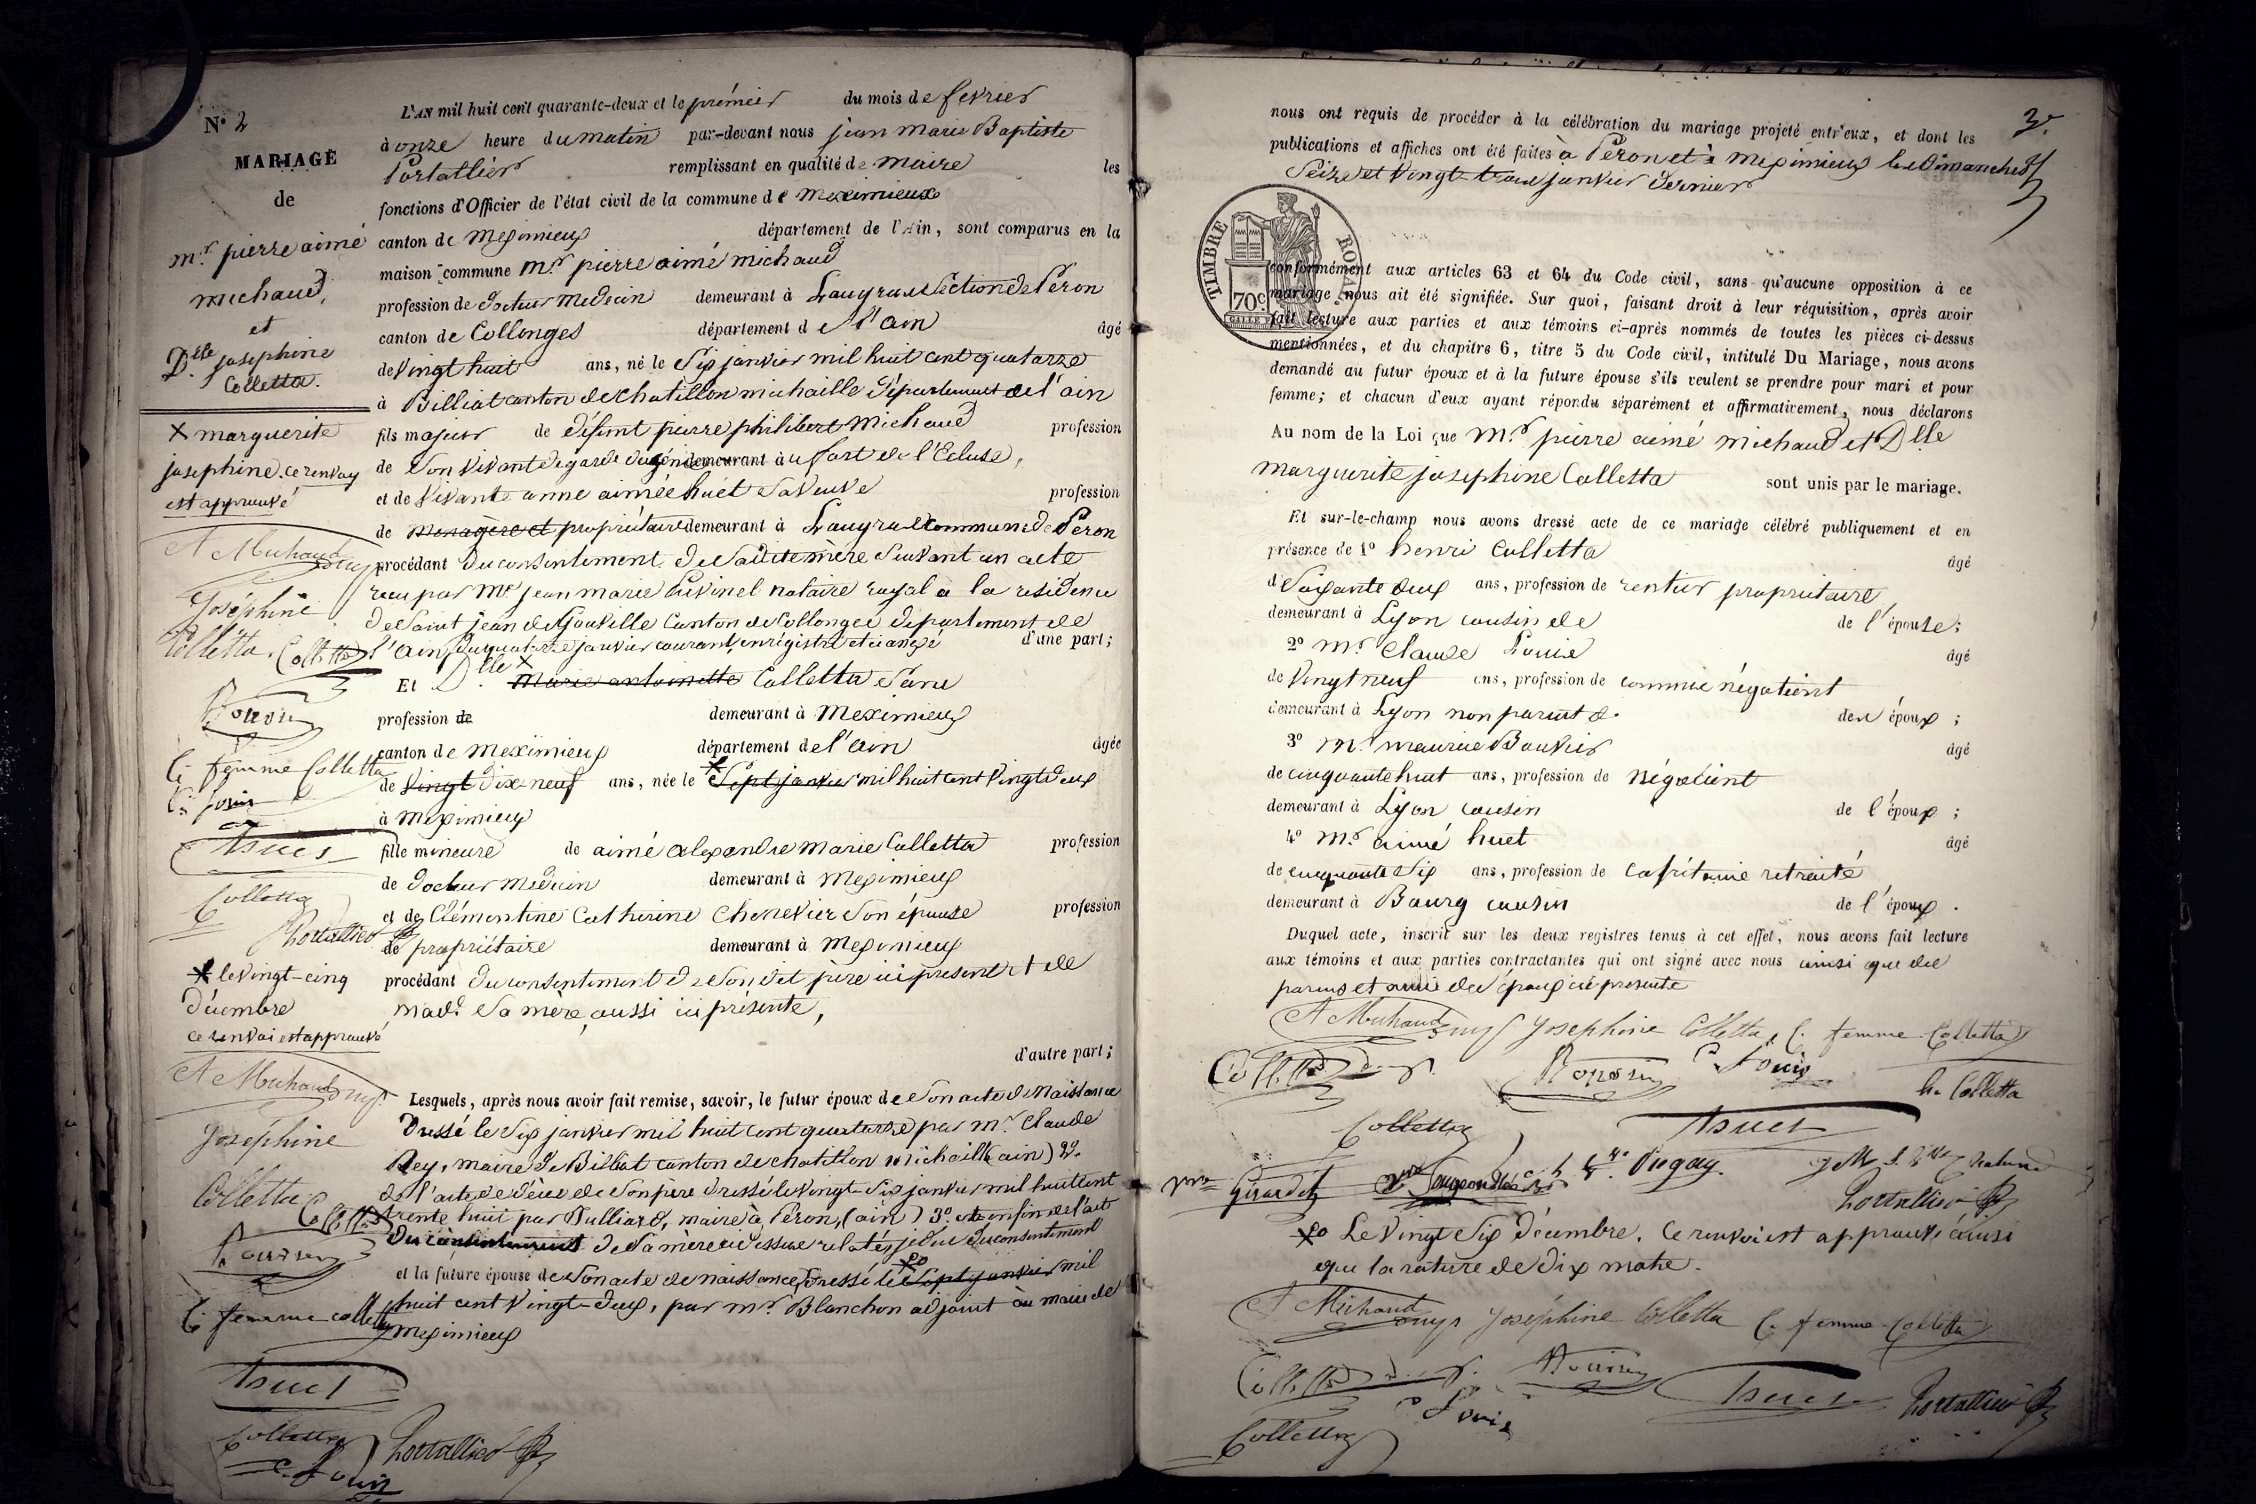 N° 2
MARIAGE
de
mr. pierre aimé
michaud,
et
Delle. josephine
Colletta.
X marguerite
josephine. ce renvoy
est approuvé
A Michaud
Joséphine
Colletta. Colletta
Bouvier
C. femme Colletta
C. Louis
Huet
Colletta
Portallier
* le vingt-cinq
décembre
ce renvoi est approuvé
A Michaud
Joséphine
Colletta Colletta
Bouvier
C. femme Colletta
Huet
Colletta Portallier
C. Louis
L'AN mil huit cent quarante-deux et le prémier du mois de fevrier
à onze heure du matin par-devant nous jean marie Baptiste
Portallier remplissant en qualité de maire les
fonctions d'Officier de l'état civil de la commune de meximieux
canton de meximieux département de l'Ain, sont comparus en la
maison commune mr. pierre aimé michaud
profession de docteur medecin demeurant à Lauyrau section de Péron
canton de Collonges département de l'ain âgé
de vingt huit ans, né le six janvier mil huit cent quatorze
à Billiat canton de chatillon michaille département de l'ain
fils majeur de défunt pierre philibert michaud profession
de son vivant de garde du génie demeurant au fort de l'Ecluse,
et de vivante anne aimée huet sa veuve profession
de menagère et propriétaire demeurant à commune de Péron
procédant du consentement de sa dite mère suivant un acte
reçu par Me jean marie notaire royal à la résidence
de Saint jean de Gonville canton de Collonges département de
l'ain, du quatorze janvier courant, enrégistré et d'une part;
Et Delle. X marie antoinette Colletta sans
profession de demeurant à meximieux
canton de meximieux département de l'ain âgée
de vingt dix-neuf ans, née le * sept janvier mil huit cent vingt deux
à meximieux
fille mineure de aimé alexandre marie Colletta profession
de docteur medecin demeurant à meximieux
et de Clémentine Catherine Chenevier son épouse profession
de propriétaire demeurant à meximieux
procédant du consentement de son dit père ici présent et de
made. sa mère aussi ici présente,
d'autre part;
Lesquels, après nous avoir fait remise, savoir, le futur époux de son acte de naissance
dressé le six janvier mil huit cent quatorze par mr. Claude
Rey, maire de Billiat canton de chatillon michaille (ain) 2°.
de l'acte de décès de son père dressé le vingt-six janvier mil huit cent
trente huit par Julliard, maire à Péron, (ain) 3° enfin de l'acte
du consentement de sa mère ci dessus relaté, du consentement
et la future épouse de son acte de naissance, dressé le * sept janvier mil
huit cent vingt-deux, par mr. Blanchon adjoint au maire de
meximieux
3e.
nous ont requis de procéder à la célébration du mariage projeté entr'eux, et dont les
publications et affiches ont été faites à Péron et à meximieux les dimanches
Seize et vingt trois janvier dernier
TIMBRE ROYAL
70c
conformément aux articles 63 et 64 du Code civil, sans qu'aucune opposition à ce
mariage nous ait été signifiée. Sur quoi, faisant droit à leur réquisition, après avoir
fait lecture aux parties et aux témoins ci-après nommés de toutes les pièces ci-dessus
mentionnées, et du chapitre 6, titre 5 du Code civil, intitulé Du Mariage, nous avons
demandé au futur époux et à la future épouse s'ils veulent se prendre pour mari et pour
femme; et chacun d'eux ayant répondu séparément et affirmativement, nous déclarons
Au nom de la Loi que mr. pierre aimé michaud et Dlle
marguerite josephine Colletta sont unis par le mariage.
Et sur-le-champ nous avons dressé acte de ce mariage célébré publiquement et en
présence de 1° henri Colletta âgé
de Soixante deux ans, profession de rentier propriétaire
demeurant à Lyon cousin de de l'épouse;
2° mr Claude Louis âgé
de vingt neuf ans, profession de commis négotient
demeurant à Lyon non parent des époux;
3° mr. maurice Bouvier âgé
de cinquante huit ans, profession de négotient
demeurant à Lyon cousin de l'époux;
4° mr aimé huet âgé
de cinquante Six ans, profession de capitaine retraité
demeurant à Bourg cousin de l'époux.
Duquel acte, inscrit sur les deux registres tenus à cet effet, nous avons fait lecture
aux témoins et aux parties contractantes qui ont signé avec nous ainsi que les
parens et amis des époux ici présents
A Michaud Joséphine Colletta, C. femme Colletta
Colletta Bouvier C. Louis
h. Colletta
Colletta Huet
Girardet Dugay.
Portallier
Le vingt Six décembre. Ce renvoi est approuvé ainsi
que la rature de dix mots.
A Michaud Joséphine Colletta C. femme Colletta
Colletta Bouvier Huet Portallier
C. Louis
Colletta